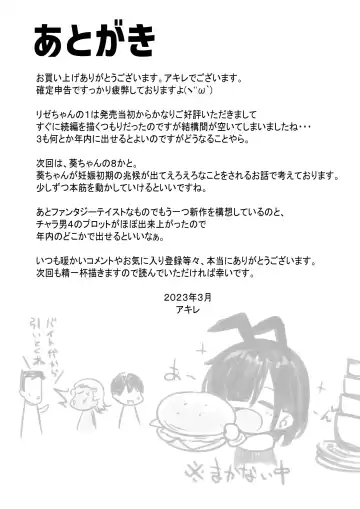 あとがき
お買い上げありがとうございます。アキレでございます。
確定申告ですっかり疲弊しておりますよ(ヽ''ω`)
リゼちゃんの1は発売当初からかなりご好評いただきまして
すぐに続編を描くつもりだったのですが結構間が空いてしまいましたね・・・
3も何とか年内に出せるとよいのですがどうなることやら。
次回は、葵ちゃんの8かと。
葵ちゃんが妊娠初期の兆候が出てえろえろなことをされるお話で考えております。
少しずつ本筋を動かしていけるといいですね。
あとファンタジーテイストなものでもう一つ新作を構想しているのと、
チャラ男4のプロットがほぼ出来上がったので
年内のどこかで出せるといいなぁ。
いつも暖かいコメントやお気に入り登録等々、本当にありがとうございます。
次回も精一杯描きますので読んでいただければ幸いです。
2023年3月
アキレ
バイト代から
引いとくね
あ〜
※まかない中